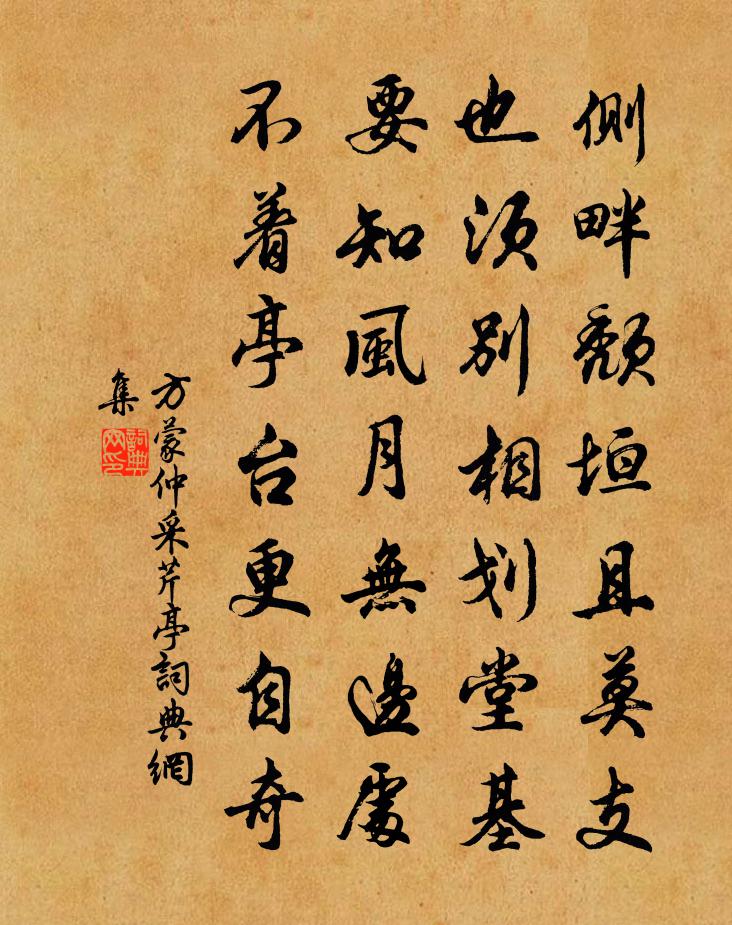 側畔頹垣且莫支
也須別相划堂基
要知風月無邊處
不着亭台更自奇
方蒙仲采芹亭詞典網
集
詞典
网印